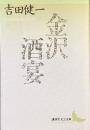 吉田健一
金沢
酒宴
講談社文芸文庫